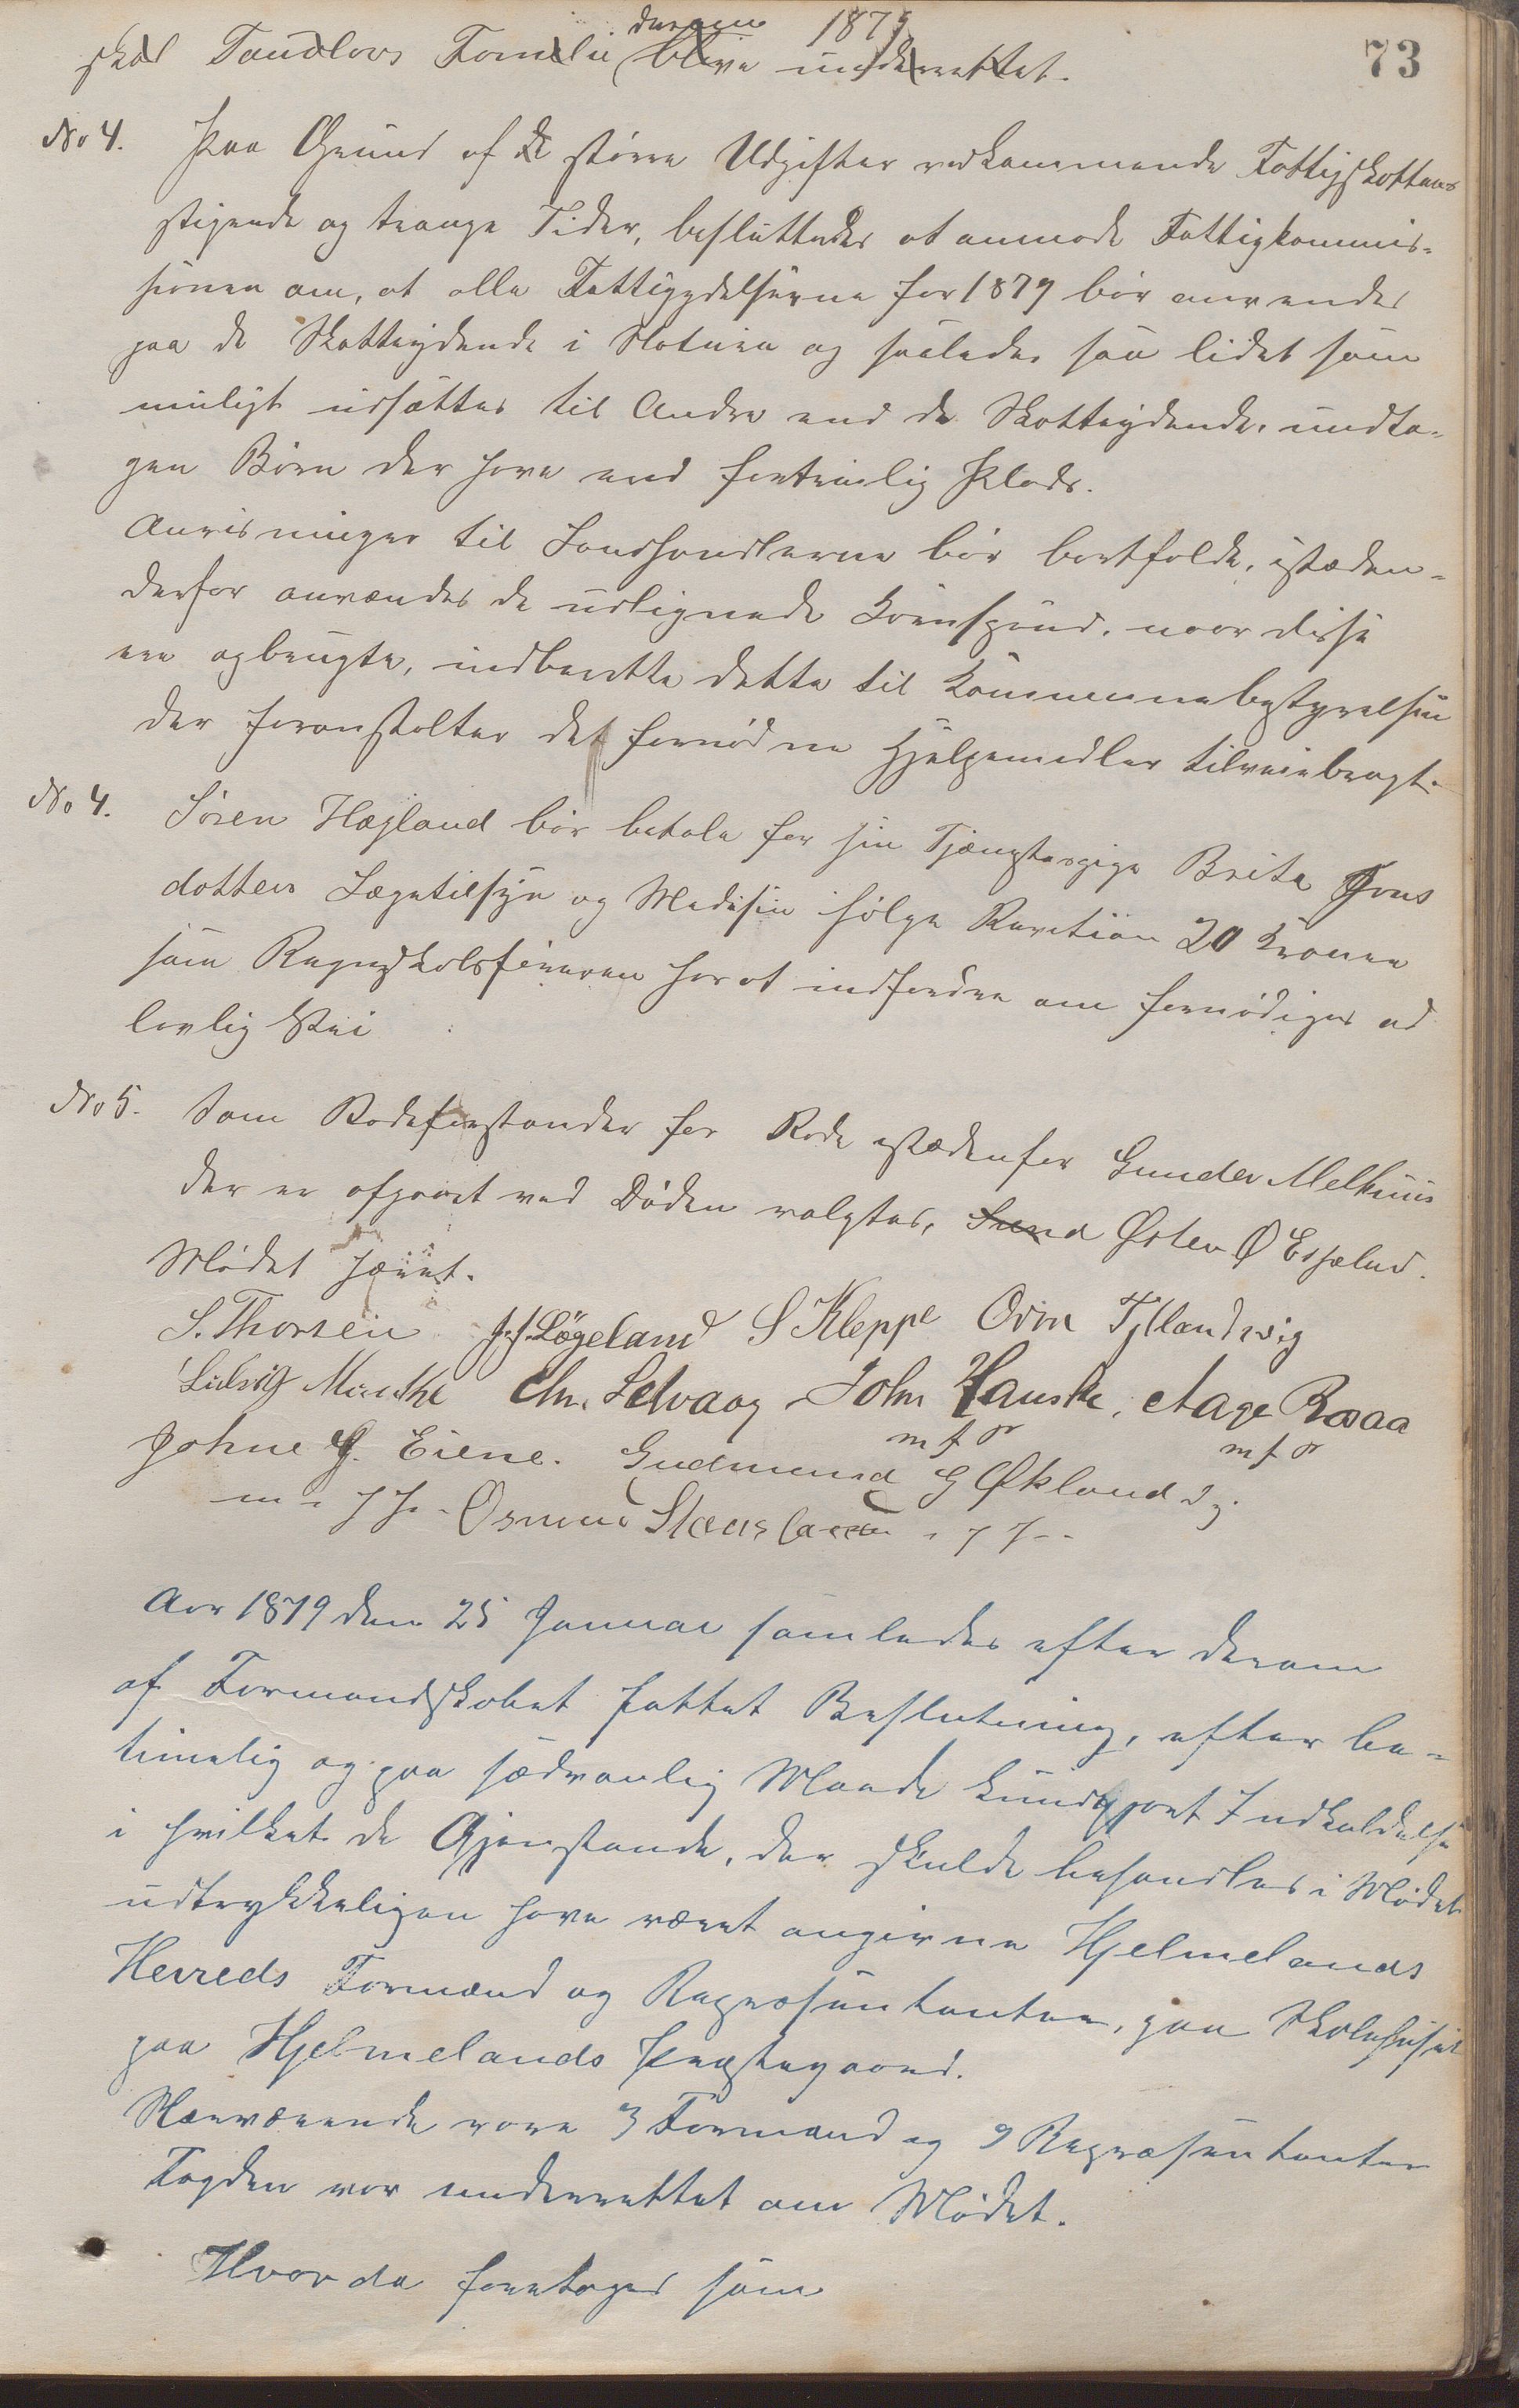 derom 1879
73
skal Tandlovs Familie blive underrettet.
No 4. Paa Grund af de større Udgifter vedkommende Fattigskattens
stigende og trange Tider, besluttedes at anmode Fattigkommis-
sionen om, at alle Fattigydelserne for 1879 bør anvendes
paa de Skatteydende i Natura og saaledes saa lidet som
muligt udsættes til Andre end de Skatteydende, undta-
gen Børn der have end fortrinlig Plads.
Anvisninger til Landhandlerne bør bortfalde, istæden-
derfor anvændes de udlignede Kornpund, naar disse
ere opbrugte, indberette dette til Kommunebestyrelsen
der foranstalter det fornødne Hjælpemidler tilveiebragt.
No 4. Sören Hægland bör betale for sin Tjænstepige Brita Jons
dotters Lægetilsyn og Medisin ifølge Rævetion 20 Kroner
som Regnskabsføreren har at indfordre om fornødiges ad
lovlig Vei
No 5. Som Rodeforstander for Rode istædenfor Gunder Melhuus
der er afgaaet ved Døden valgtes, Østen Ø Espelund.
Mødet hævet.
S. Thorsen J. J. Lögeland S Kleppe Orm Tytlandsvig
Ludvig Munthe Chr. Selvaag John Hauske, Aage Raaa
m f P m f P
Johne J. Eiene. Gudmund G Økland
Osmund
Aar 1879 den 25 Januar samledes efter derom
af Formandskabet fattet Beslutning, efter be-
timelig og paa sædvanlig Maade kundgjort Indkaldelse
i hvilket de Gjenstande, der skulde behandles i Mødet
udtrykkeligen have været angivne Hjelmelands
Herreds Formænd og Repræsentanter, paa Skolehuset
paa Hjelmelands Præstegaard.
Nærværende vare 3 Formænd og 9 Repræsentanter
Fogden var underrettet om Mødet.
Hvor da foretoges som